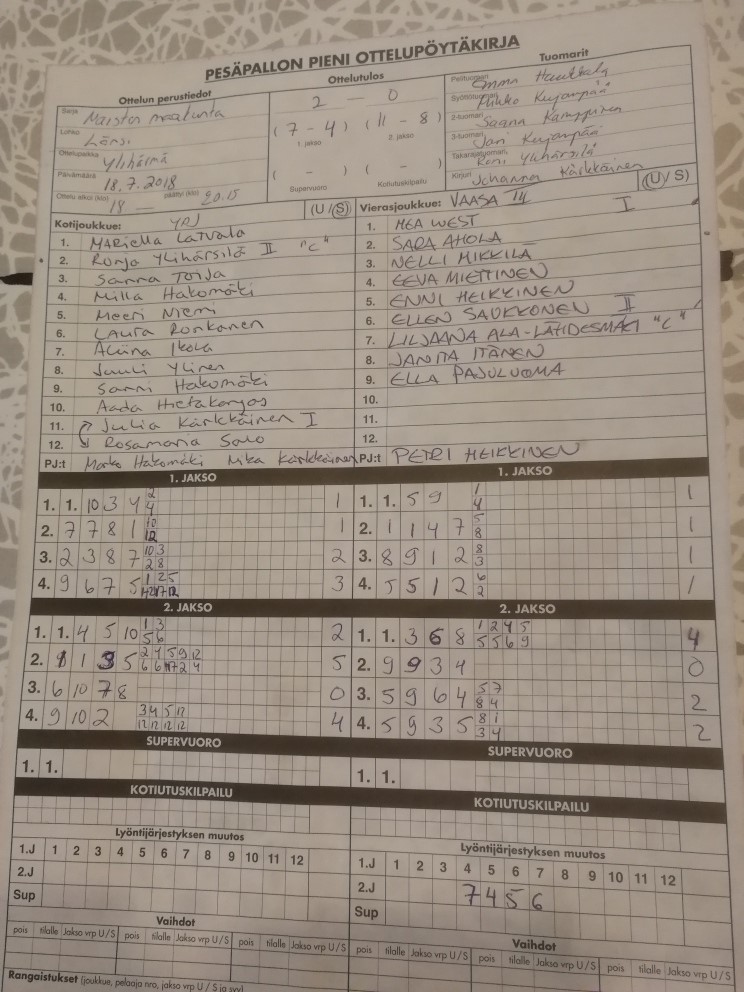 PESÄPALLON PIENI OTTELUPÖYTÄKIRJA
Ottelun perustiedot
Ottelutulos
Tuomarit
Sarja Maiston maakunta
Lohko Länsi
Ottelupaikka Ylihärmä
Päivämäärä 18.7.2018
Ottelu alkoi (klo) 18 päättyi (klo) 20.15
2 — 0
(7 - 4) (11 - 8)
1. jakso 2. jakso
( - ) ( - )
Supervuoro Kotiutuskilpailu
Pelituomari Emma
Syöttötuomari Pirkko Kujanpää
2-tuomari Saana Kamppinen
3-tuomari Jari Kujanpää
Takarajatuomari Roni Ylihärsilä
Kirjuri Johanna Kärkkäinen
Kotijoukkue: YPJ (U/S)
1. Mariella Latvala
2. Ronja Ylihärsilä II "C"
3. Sanna Toija
4. Milla Hakomäki
5. Meeri Niemi
6. Laura Ronkanen
7. Aliina Ikola
8. Juuli Ylinen
9. Sanni Hakomäki
10. Aada Hietakangas
11. Julia Kärkkäinen I
12. Rosamaria Salo
PJ:t Marko Hakomäki Mika Kärkkäinen
Vierasjoukkue: VAASA III I (U/S)
1. MEA WEST
2. SARA AHOLA
3. NELLI MIKKILÄ
4. EEVA MIETTINEN
5. ENNI HEIKKINEN
6. ELLEN SAUKKONEN II
7. LILJAANA ALA-LAHDESMÄKI "C"
8. JANITA ITÄNEN
9. ELLA PAJULUOMA
10.
11.
12.
PJ:t PETRI HEIKKINEN
1. JAKSO
1. 1. 10 3 4 2 4 1
2. 7 7 8 1 10 12 1
3. 2 3 8 7 10 3 2 8 2
4. 9 6 7 5 1 2 5 3
2. JAKSO
1. 1. 4 5 10 1 3 5 6 2
2. 8 1 3 5 2 4 5 9 12 5
3. 6 10 7 8 0
4. 9 10 2 3 4 5 12 12 12 12 4
SUPERVUORO
1. 1.
KOTIUTUSKILPAILU
Lyöntijärjestyksen muutos
1.J 1 2 3 4 5 6 7 8 9 10 11 12
2.J
Sup
Vaihdot
pois tilalle Jakso vrp U/S pois tilalle Jakso vrp U/S pois tilalle Jakso vrp U/S
Rangaistukset (joukkue, pelaaja nro, jakso vrp U/S ja syy)
1. JAKSO
1. 1. 5 9 1 4 1
2. 1 1 4 7 5 8 1
3. 8 9 1 2 8 3 1
4. 5 5 1 2 6 2 1
2. JAKSO
1. 1. 3 6 8 1 2 4 5 5 5 6 9 4
2. 9 9 3 4 0
3. 5 9 6 4 5 7 8 4 2
4. 5 9 3 5 8 1 3 4 2
SUPERVUORO
1. 1.
KOTIUTUSKILPAILU
Lyöntijärjestyksen muutos
1.J 1 2 3 4 5 6 7 8 9 10 11 12
2.J 7 4 5 6
Sup
Vaihdot
pois tilalle Jakso vrp U/S pois tilalle Jakso vrp U/S pois tilalle Jakso vrp U/S